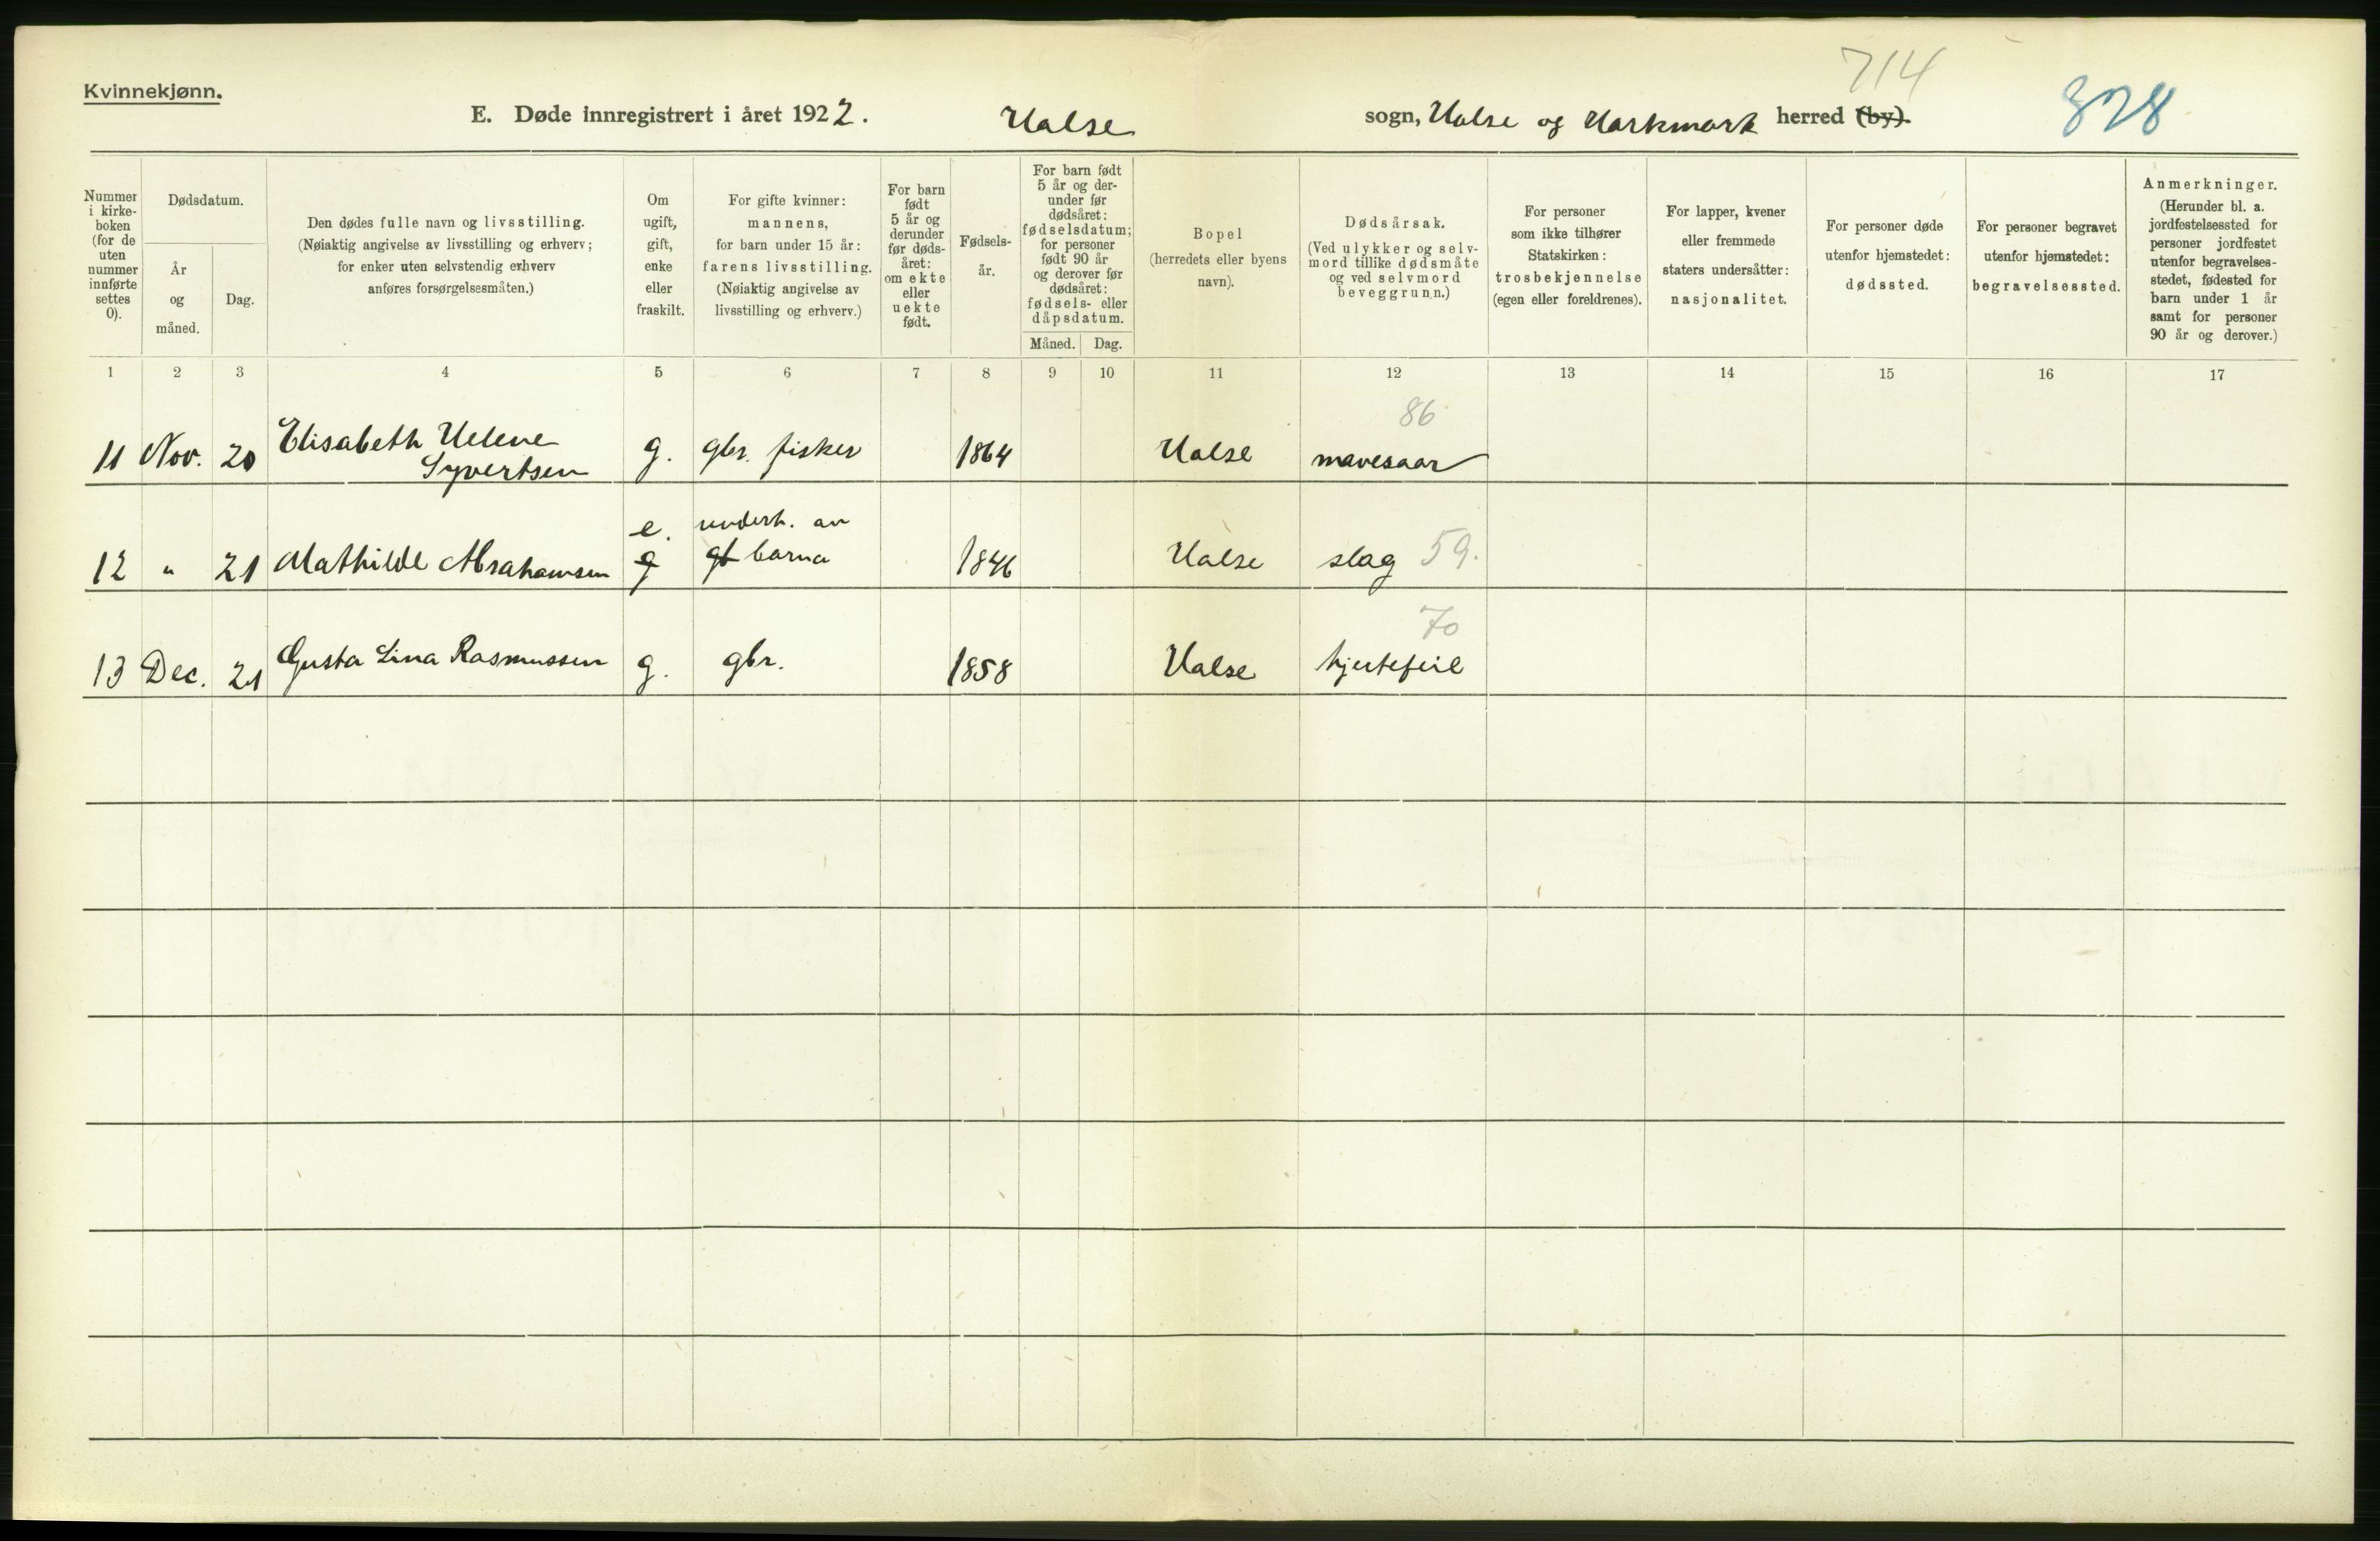 714
Kvinnekjønn.
828
E. Døde innregistrert i året 1922. Halse sogn, Halse og Harkmark herred (by).
Nummer i kirke- boken (for de uten nummer innførte settes 0).
Dødsdatum.
År og måned.
Dag.
Den dødes fulle navn og livsstilling.
(Nøiaktig angivelse av livsstilling og erhverv;
for enker uten selvstendig erhverv
anføres forsørgelsesmåten.)
Om ugift, gift, enke eller fraskilt.
For gifte kvinner:
mannens,
for barn under 15 år:
farens livsstilling.
(Nøiaktig angivelse av
livsstilling og erhverv.)
For barn født 5 år og derunder før døds- året: om ekte eller uekte født.
Fødsels- år.
For barn født
5 år og der-
under før
dødsåret:
fødselsdatum;
for personer
født 90 år
og derover før
dødsåret:
fødsels- eller
dåpsdatum.
Måned. Dag.
Bopel
(herredets eller byens
navn).
Dødsårsak.
(Ved ulykker og selv-
mord tillike dødsmåte
og ved selvmord
beveggrunn.)
For personer
som ikke tilhører
Statskirken:
trosbekjennelse
(egen eller foreldrenes).
For lapper, kvener
eller fremmede
staters undersåtter:
nasjonalitet.
For personer døde
utenfor hjemstedet:
dødssted.
For personer begravet
utenfor hjemstedet:
begravelsessted.
Anmerkninger.
(Herunder bl. a.
jordfestelsessted for
personer jordfestet
utenfor begravelses-
stedet, fødested for
barn under 1 år
samt for personer
90 år og derover.)
1 2 3 4 5 6 7 8 9 10 11 12 13 14 15 16 17
86
11 Nov. 20 Elisabeth Helene Syvertsen g. gbr. fisker 1864 Halse mavesaar
e. underh. av
12 " 21 Mathilde Abrahamsen g gb barna 1846 Halse slag 59.
70
13 Dec. 21 Gusta Lina Rasmussen g. gbr. 1858 Halse hjertefeil